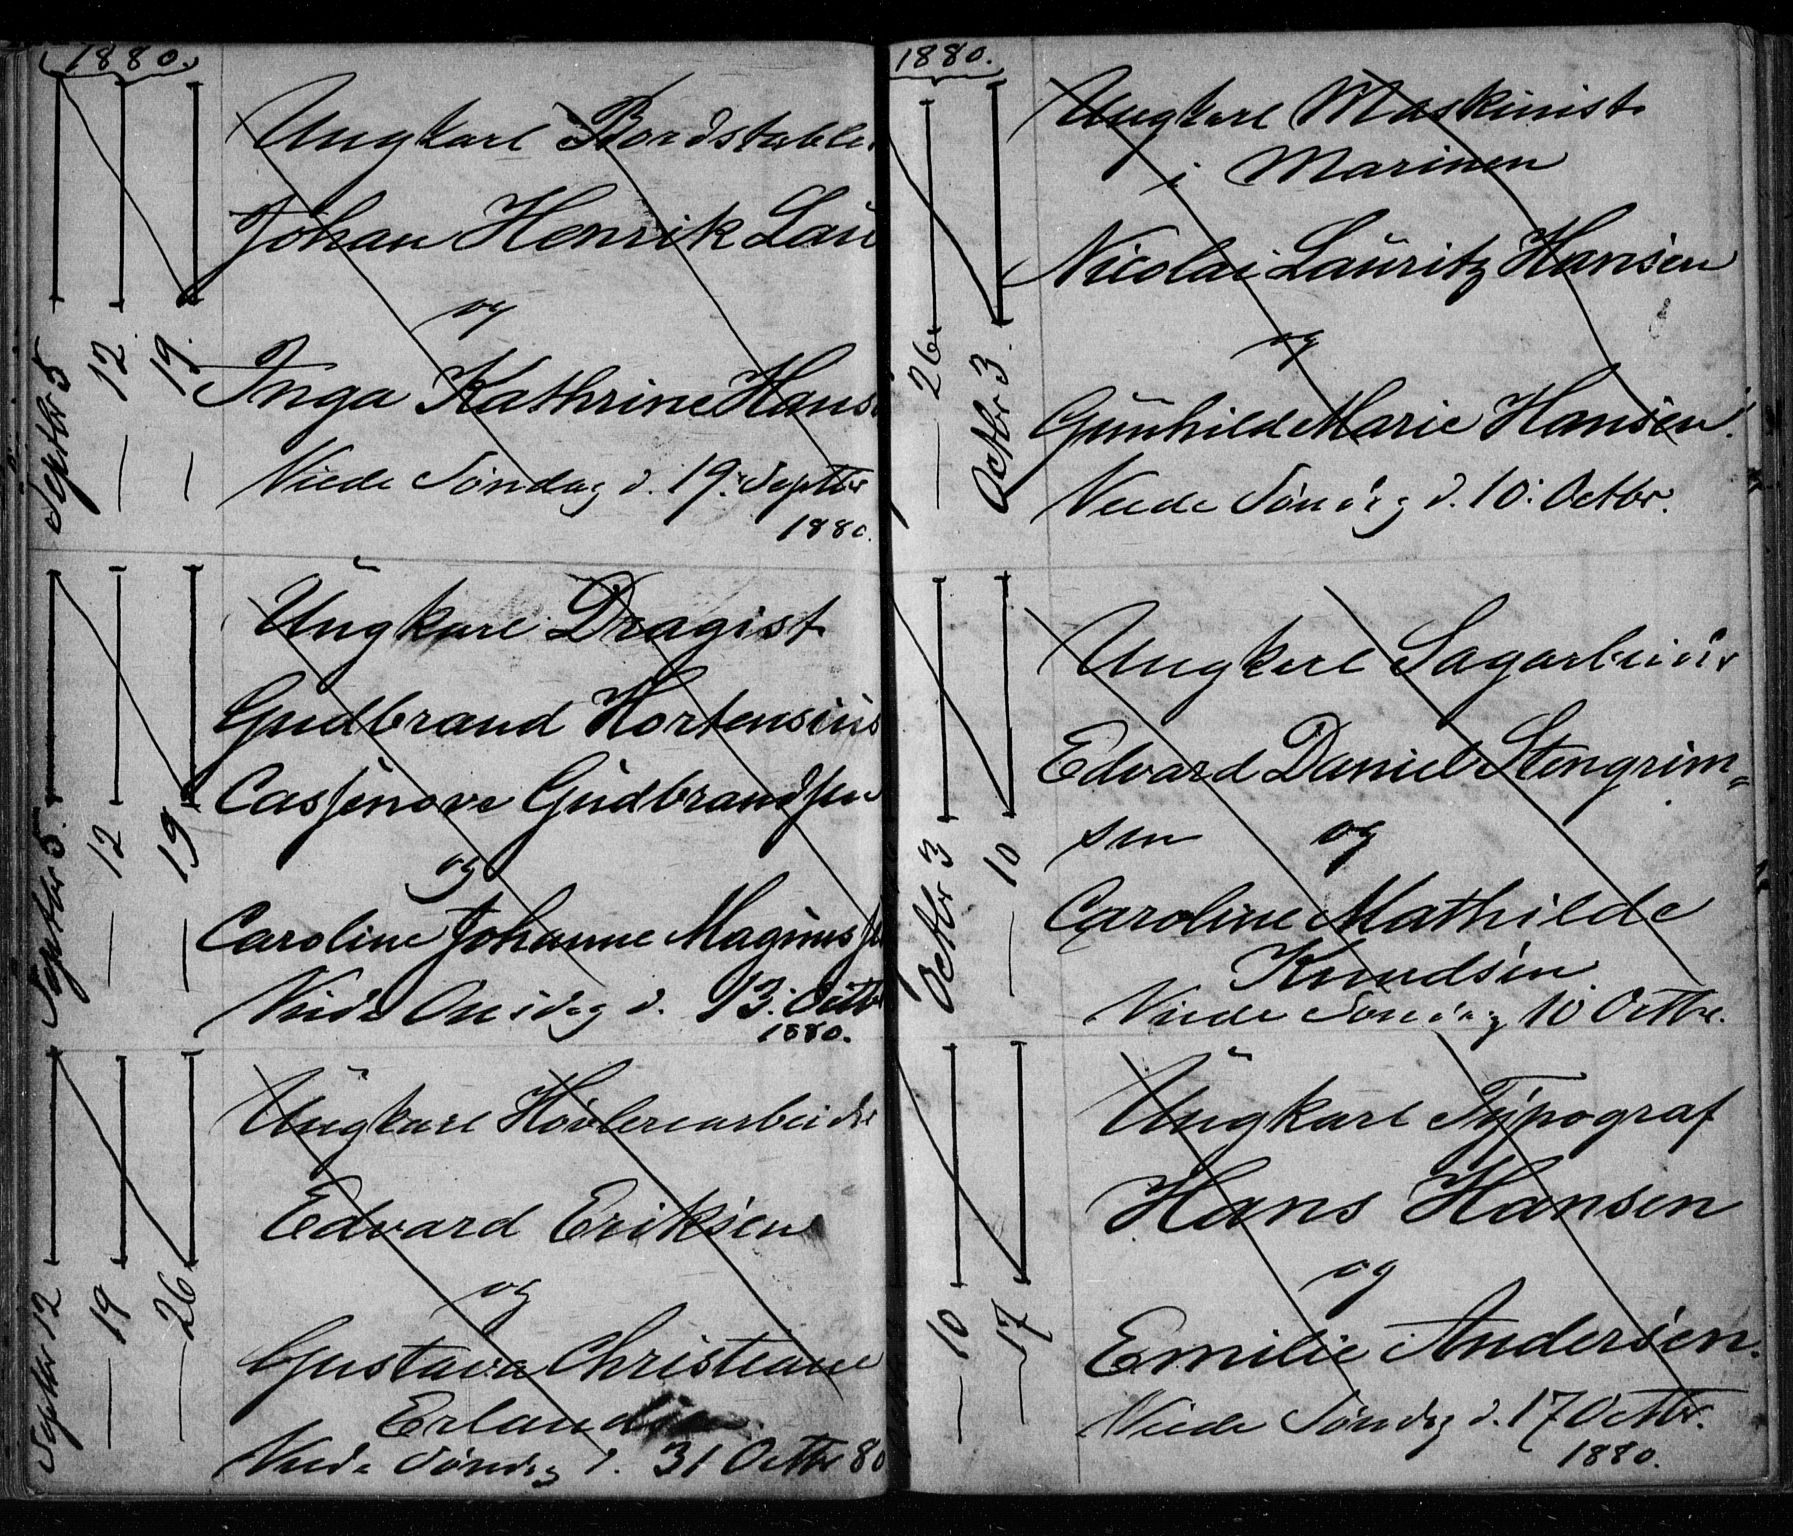 1880.
Septbr 5 — 12. — 19.
Ungkarl Bordstable
Johan Henrik Lau
og
Inga Kathrine Hans
Viede Søndag d. 19. Septbr
1880.
Septbr 5. — 12 — 19
Ungkarl Dragist
Gudbrand Hortensius
Cassenove Gudbrandsen
og
Caroline Johanne Magnuss
Viede Onsdag d. 13. Octb
1880.
Septbr 12 — 19 — 26
Ungkarl Høvleriarbeider
Edvard Eriksen
og
Gustava Christiane
Erlandsen
Viede Søndag d. 31 Octbr 80
1880.
— 26 Octbr 3.
Ungkarl Maskinist
i Marinen
Nicolai Lauritz Hansen
og
Gunhild Marie Hansen.
Viede Søndag d. 10. Octbr.
Octbr 3 — 10
Ungkarl Sagarbeider
Edvard Daniel Stengrim=
sen og
Caroline Mathilde
Knudsen
Viede Søndag 10 Octbr.
— 10 — 17
Ungkarl Typograf
Hans Hansen
og
Emilie Andersen.
Viede Søndag d. 17 Octbr.
1880.